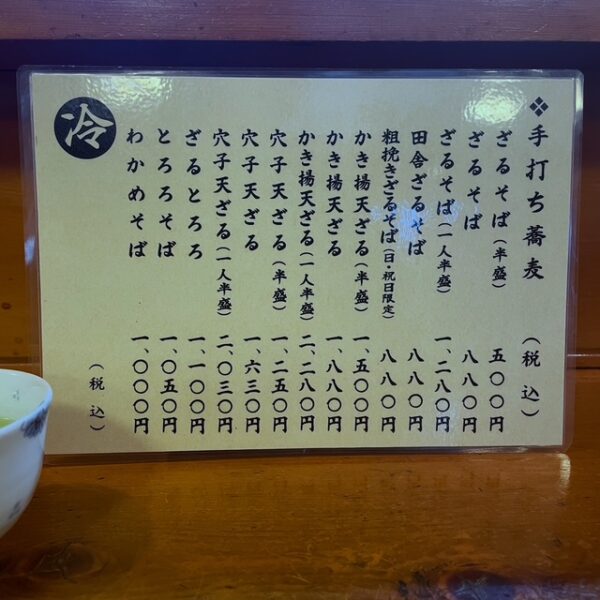 ❖手打ち蕎麦 (税込)
ざるそば(半盛) 五〇〇円
ざるそば 八八〇円
ざるそば(一人半盛) 一、二八〇円
田舎ざるそば 八八〇円
粗挽きざるそば(日・祝日限定) 八八〇円
かき揚天ざる(半盛) 一、五〇〇円
かき揚天ざる 一、八八〇円
かき揚天ざる(一人半盛) 二、二八〇円
穴子天ざる(半盛) 一、二五〇円
穴子天ざる 一、六三〇円
穴子天ざる(一人半盛) 二、〇三〇円
ざるとろろ 一、一〇〇円
とろろそば 一、〇五〇円
わかめそば 一、〇〇〇円
冷
(税込)